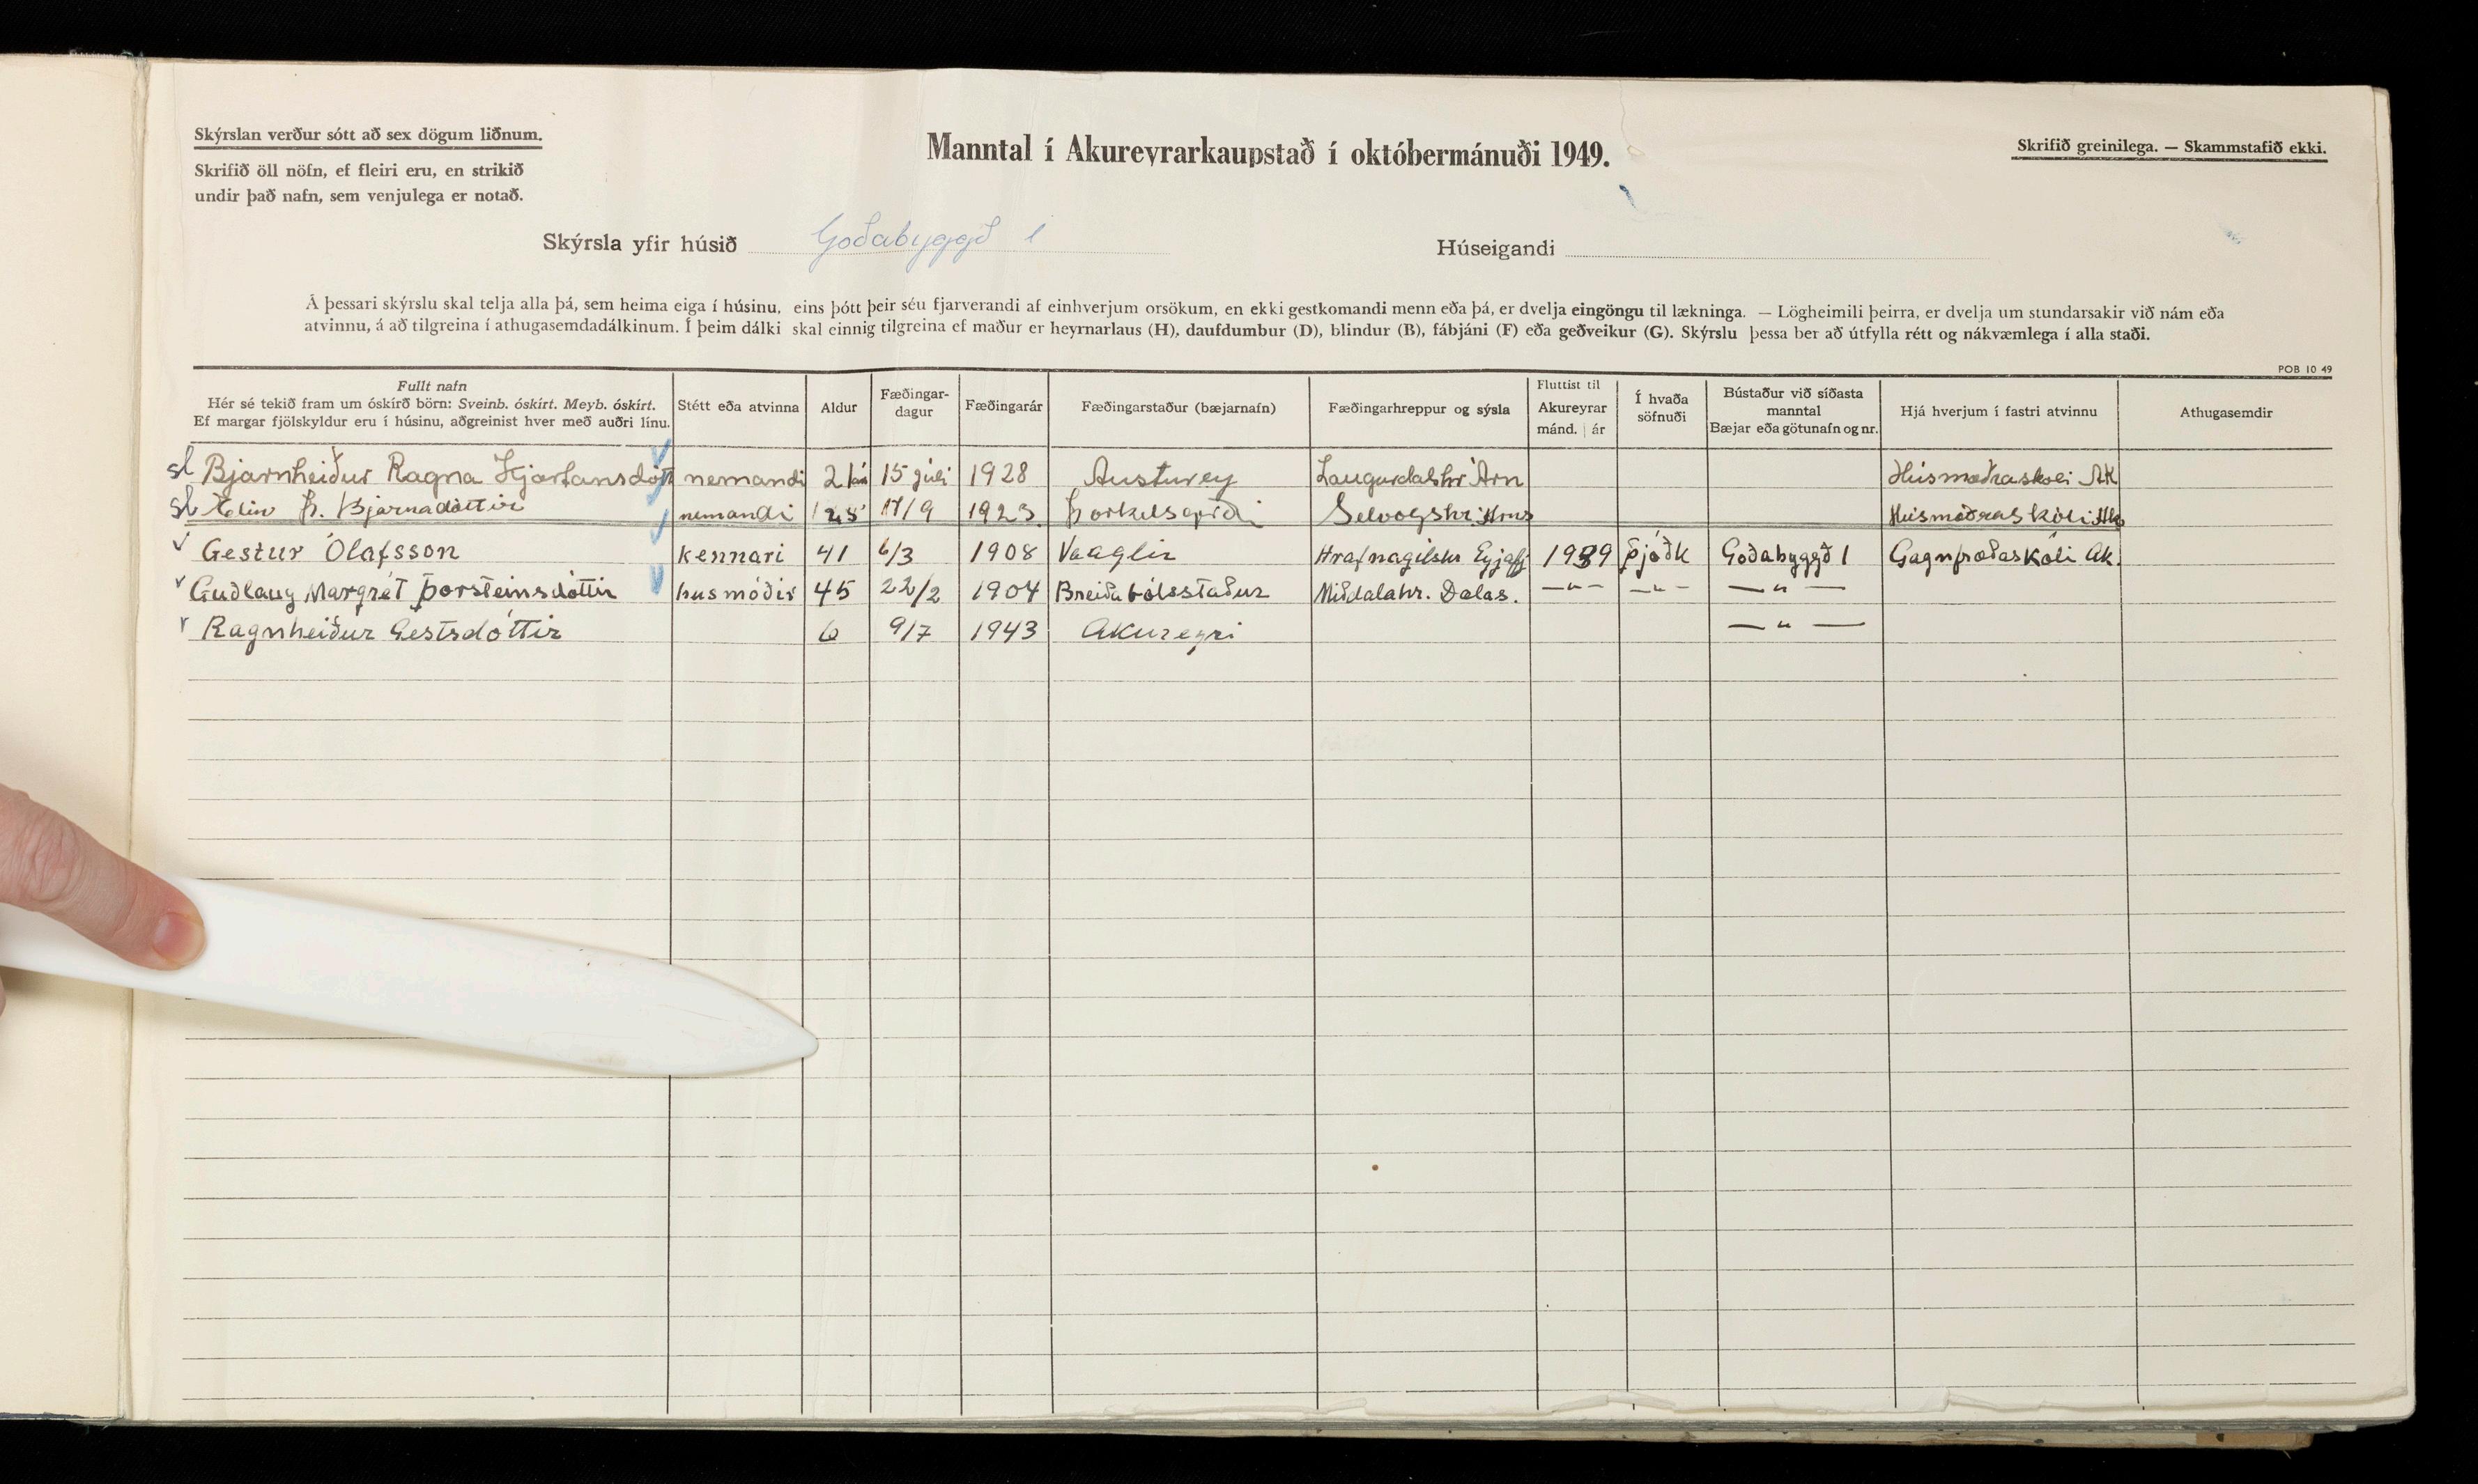 Skýrslan verður sótt að sex dögum liðnum.
Skrifið öll nöfn, ef fleiri eru, en strikið
undir það nafn, sem venjulega er notað.
Manntal í Akureyrarkaupstað í októbermánuði 1949.
Skrifið greinilega. — Skammstafið ekki.
Skýrsla yfir húsið Goðabyggð 1 Húseigandi
Á þessari skýrslu skal telja alla þá, sem heima eiga í húsinu, eins þótt þeir séu fjarverandi af einhverjum orsökum, en ekki gestkomandi menn eða þá, er dvelja eingöngu til lækninga. — Lögheimili þeirra, er dvelja um stundarsakir við nám eða
atvinnu, á að tilgreina í athugasemdadálkinum. Í þeim dálki skal einnig tilgreina ef maður er heyrnarlaus (H), daufdumbur (D), blindur (B), fábjáni (F) eða geðveikur (G). Skýrslu þessa ber að útfylla rétt og nákvæmlega í alla staði.
POB 10 49
Fullt nafn
Hér sé tekið fram um óskírð börn: Sveinb. óskírt. Meyb. óskírt.
Ef margar fjölskyldur eru í húsinu, aðgreinist hver með auðri línu.
Stétt eða atvinna
Aldur
Fæðingar-
dagur
Fæðingarár
Fæðingarstaður (bæjarnafn)
Fæðingarhreppur og sýsla
Fluttist til
Akureyrar
mánd. ár
Í hvaða
söfnuði
Bústaður við síðasta
manntal
Bæjar eða götunafn og nr.
Hjá hverjum í fastri atvinnu
Athugasemdir
sl Bjarnheiður Ragna Hjartansdótt nemandi 15 júlí 1928 Austurey Laugardalshr Árn Húsmæðraskóli AK
sl Elín Þ. Bjarnadóttir nemandi 17/9 1923 Selvogshr. Húsmæðraskóli
Gestur Ólafsson kennari 41 6/3 1908 Hrafnagilshr Eyjafj 1939 Þjóðk Goðabyggð 1 Gagnfræðaskóli Ak.
Guðlaug Margrét Þorsteinsdóttir húsmóðir 45 22/2 1904 Breiðabólsstaður Miðdalahr. Dalas. —"— —"— —"—
Ragnheiður Gestsdóttir 6 9/7 1943 Akureyri —"—